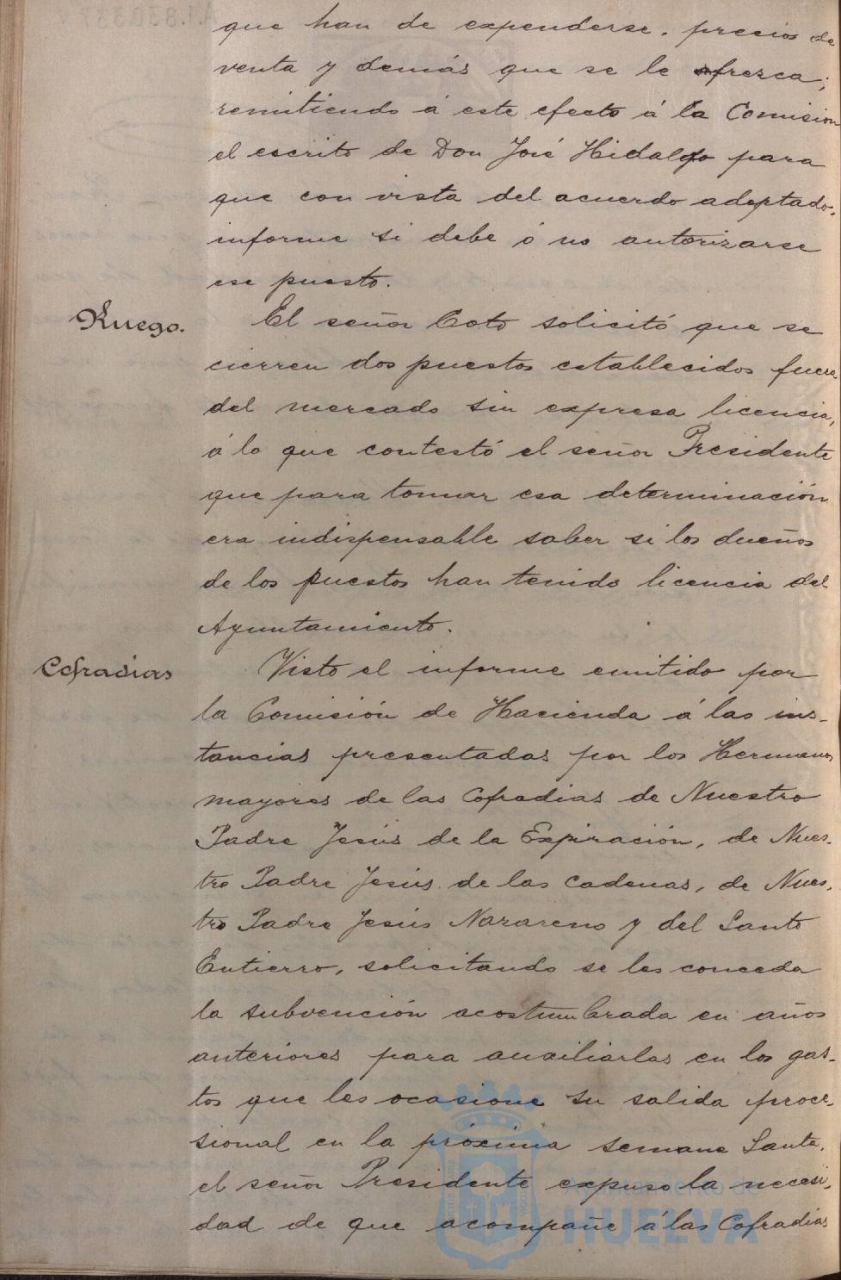 que han de expenderse, precios de
venta y demás que se le ofrezca;
remitiendo á este efecto á la Comisión
el escrito de Don José Hidalgo para
que con vista del acuerdo adoptado,
informe si debe ó no autorizarse
ese puesto.
Ruego. El señor Coto solicitó que se
cierren dos puestos establecidos fuera
del mercado sin expresa licencia,
á lo que contestó el señor Presidente
que para tomar esa determinación
era indispensable saber si los dueños
de los puestos han tenido licencia del
Ayuntamiento.
Cofradias Visto el informe emitido por
la Comisión de Hacienda á las ins-
tancias presentadas por los Hermanos
mayores de las Cofradias de Nuestro
Padre Jesús de la Expiración, de Nues-
tro Padre Jesús de las Cadenas, de Nues-
tro Padre Jesús Nazareno y del Santo
Entierro, solicitando se les conceda
la subvención acostumbrada en años
anteriores para auxiliarlas en los gas-
tos que les ocasione su salida proce-
sional en la próxima semana Santa,
el señor Presidente expuso la necesi-
dad de que acompañe á las Cofradias
Ayuntamiento de
HUELVA